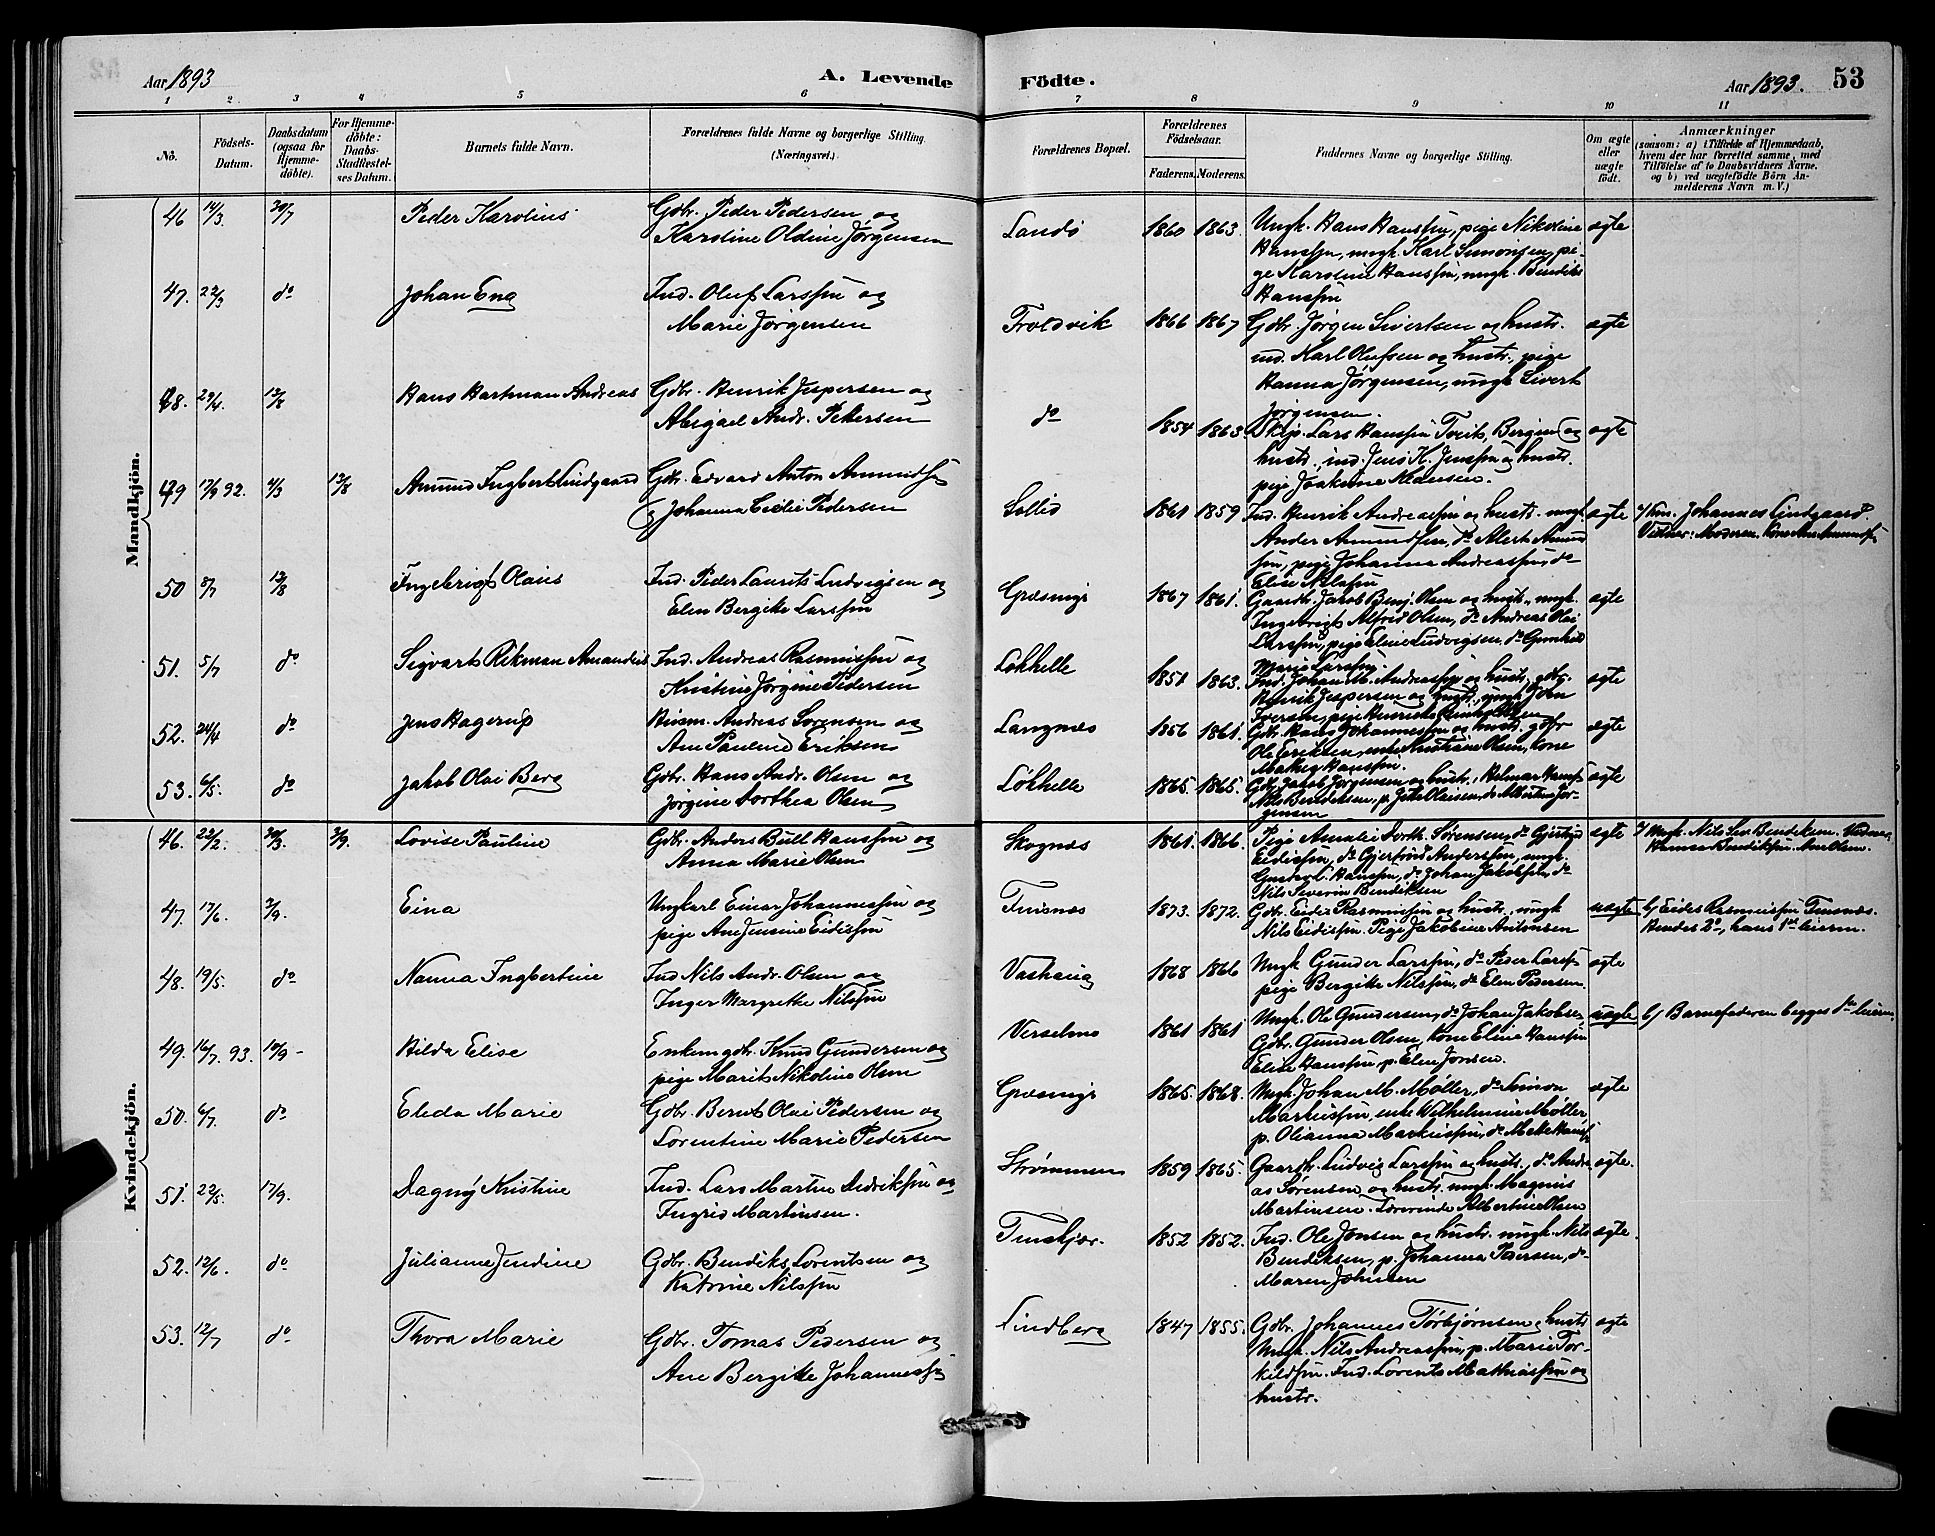 Aar 1893
A. Levende
Födte.
Aar 1893.
53
1 2 3 4 5 6 7 8 9 10 11
No.
Födsels-
Datum.
Daabsdatum
(ogsaa for
Hjemme-
döbte).
For Hjemme-
döbte:
Daabs-
Stadfestel-
ses Datum.
Barnets fulde Navn.
Forældrenes fulde Navne og borgerlige Stilling.
(Næringsvei.)
Forældrenes Bopæl.
Forældrenes
Födselsaar.
Faderens. Moderens.
Faddernes Navne og borgerlige Stilling.
Om ægte
eller
uægte
födt.
Anmærkninger
(saasom: a) i Tilfælde af Hjemmedaab,
hvem der har forrettet samme, med
Tilföielse af to Daabsvidners Navne,
og b) ved uægtefödte Börn An-
melderens Navn m. V.)
Mandkjön.
46 14/3 30/7 Peder Karolius Gdbr. Peder Pedersen og
Karoline Oldine Jørgensen
Landö 1860 1863 Ungk. Hans Hanssen, pige Nikoline ægte
Hanssen, ungk. Karl Simonsen, pi-
ge Karoline Hanssen, ungk. Bendiks
Hanssen
47. 22/3 do Johan Eng Ind. Oluf Larssen og
Marie Jørgensen
Troldvik 1866 1867 Gdbr. Jørgen Sivertsen og hustr. ægte
ind. Karl Olufsen og hustr., pige
Hanna Jørgensen, ungk. Sivert
Jørgensen.
48. 23/4. 13/8 Hans Hartman Andreas Gdbr. Henrik Jespersen og
Abigael Andr. Pettersen
do 1854 1863. Skip. Lars Hanssen Tveit, Bergen og ægte
hustr., ind. Jens K. Jenssen og hustr.
pige Joakime Klausen.
49 17/9 92. 4/3 13/8 Amund Ingbert Lindgaard Gdbr. Edvard Anton Amundsen
og Johanna Cecilie Pedersen
Sollid 1861 1859 Ind. Henrik Andreassen og hustr. ungk. ægte
Ander Amundsen, do Alert Amund
sen, pige Johanna Andreassen, do
Elise Nilssen
Johannes Lindgaard.
Vidner: Moderen.
50 8/7 13/8 Ingebrigt Olaus Ind. Peder Laurits Ludvigsen og
Elen Bergitte Larssen
Græsmyr 1867 1861. Gaardbr. Jakob Benj. Olsen og hustr., ungk. ægte
Ingebrigt Alfred Olsen, do Andreas Olai
Larssen, pige Eline Ludvigsen, do Gunhild
Marie Larssen.
51. 5/7 do Sigvart Rikman Amandus Ind. Andreas Rasmussen og
Kristine Jørgine Pedersen
Løkhelle 1851 1863. Ind. Johan M. Andreassen og hustr., gdbr. ægte
Henrik Jespersen og hustr., ungk. John
Iversen, pige
52. 24/4 do Jens Hagerup Husm. Andreas Sørensen og
Ane Pauline Eriksen
Langnes 1856 1861. Gdbr. Hans Johannessen og hustr. gdbr. ægte
Ole Eriksen, enke Kristiane Olsen, kone
Hanssen.
53. 6/5. do Jakob Olai Berg Gdbr. Hans Andr. Olsen og
Jørgine Dorthea Olsen
Løkhelle 1865. 1865. Gdbr. Jakob Jørgensen og hustr., Helmar Hanss. ægte
Nils Bendiksen, p. Jette Olaisen, do Albertine Jør-
gensen
Kvindekjön.
46. 22/2. 30/3. 3/9. Lovise Pauline Gdbr. Anders Bull Hanssen og
Anna Marie Olsen
Skognæs 1861. 1866. Pige Amalie Dorth. Sørensen, do ægte
Eidissen, do Gjertrud Anderssen, ungk.
Gustav L. Hanssen, do Johan Jakobsen, do
Nils Severin Bendiksen
Ungk. Nils Sev. Bendiksen. Vidner
Hanna Bendiksen. Ane Olsen.
47. 17/6. 3/9. Eina Ungkarl Einar Johannessen og
pige Ane Jensine Eidissen
Finsnes 1873. 1872. Gdbr. Eidis Rasmussen og hustr., ungk. uægte
Nils Eidissen. Pige Jakobine Antonsen
b/ Eidis Rasmussen Finsnes.
Hendes 2det, hans 1ste leierm.
48. 19/5. do Nanna Ingbertine Ind. Nils Andr. Olsen og
Inger Margrethe Nilssen
Vashaug 1868 1866 Ungk. Gunder Larssen, do Peder Larss. ægte
pige Bergitte Nilssen, do Elen Pedersen.
49. 16/7. 93. 10/9 - Hilda Elise Enkem. gdbr. Knud Gundersen og
pige Marit Nikoline Olsen
Verselmo 1861 1861 Ungk. Ole Gundersen, do Johan Jakobsen uægte
Gdbr. Gunder Olsen, kone Eline Hanssen
Elise Hanssen, p. Elen Jonsen.
b/ Barnefaderen begges 1ste leierm.
50. 6/7. do Eleda Marie Gdbr. Bernt Olai Pedersen og
Lorentine Marie Pedersen
Græsmyr 1865. 1868. Ungk. Johan M. Møller, do Simon ægte
Markussen, enke Wilhelmine Møller,
p. Olianna Markussen, do Mette Hanss.
51. 29/5. 17/9. Dagny Kristine Ind. Lars Martin Didriksen og
Ingrid Martinsen.
Strømmen 1859 1865. Gaardbr. Ludvig Larssen og hustr., do Andre ægte.
as Sørensen og hustr. ungk. Magnus
Martinsen. Lærerinde Albertine Olsen
52. 12/6. do Julianna Jendine Gdbr. Bendiks Lorentsen og
Katrine Nilssen
Finskjær. 1852 1852. Ind. Ole Jonsen og hustr. ungk. Nils ægte.
Bendiksen, p. Johanna Pedersen, do
Maren Johnsen
53. 12/7 do Thora Marie Gdbr. Tomas Pedersen og
Ane Bergitte Johannessen
Lindberg 1847 1855. Gdbr. Johannes Torbjørnsen og hustr. ægte
Ungk. Nils Andreassen, p. Marie Tor-
kildsen. Ind. Lorents Mathiassen og
hustr.